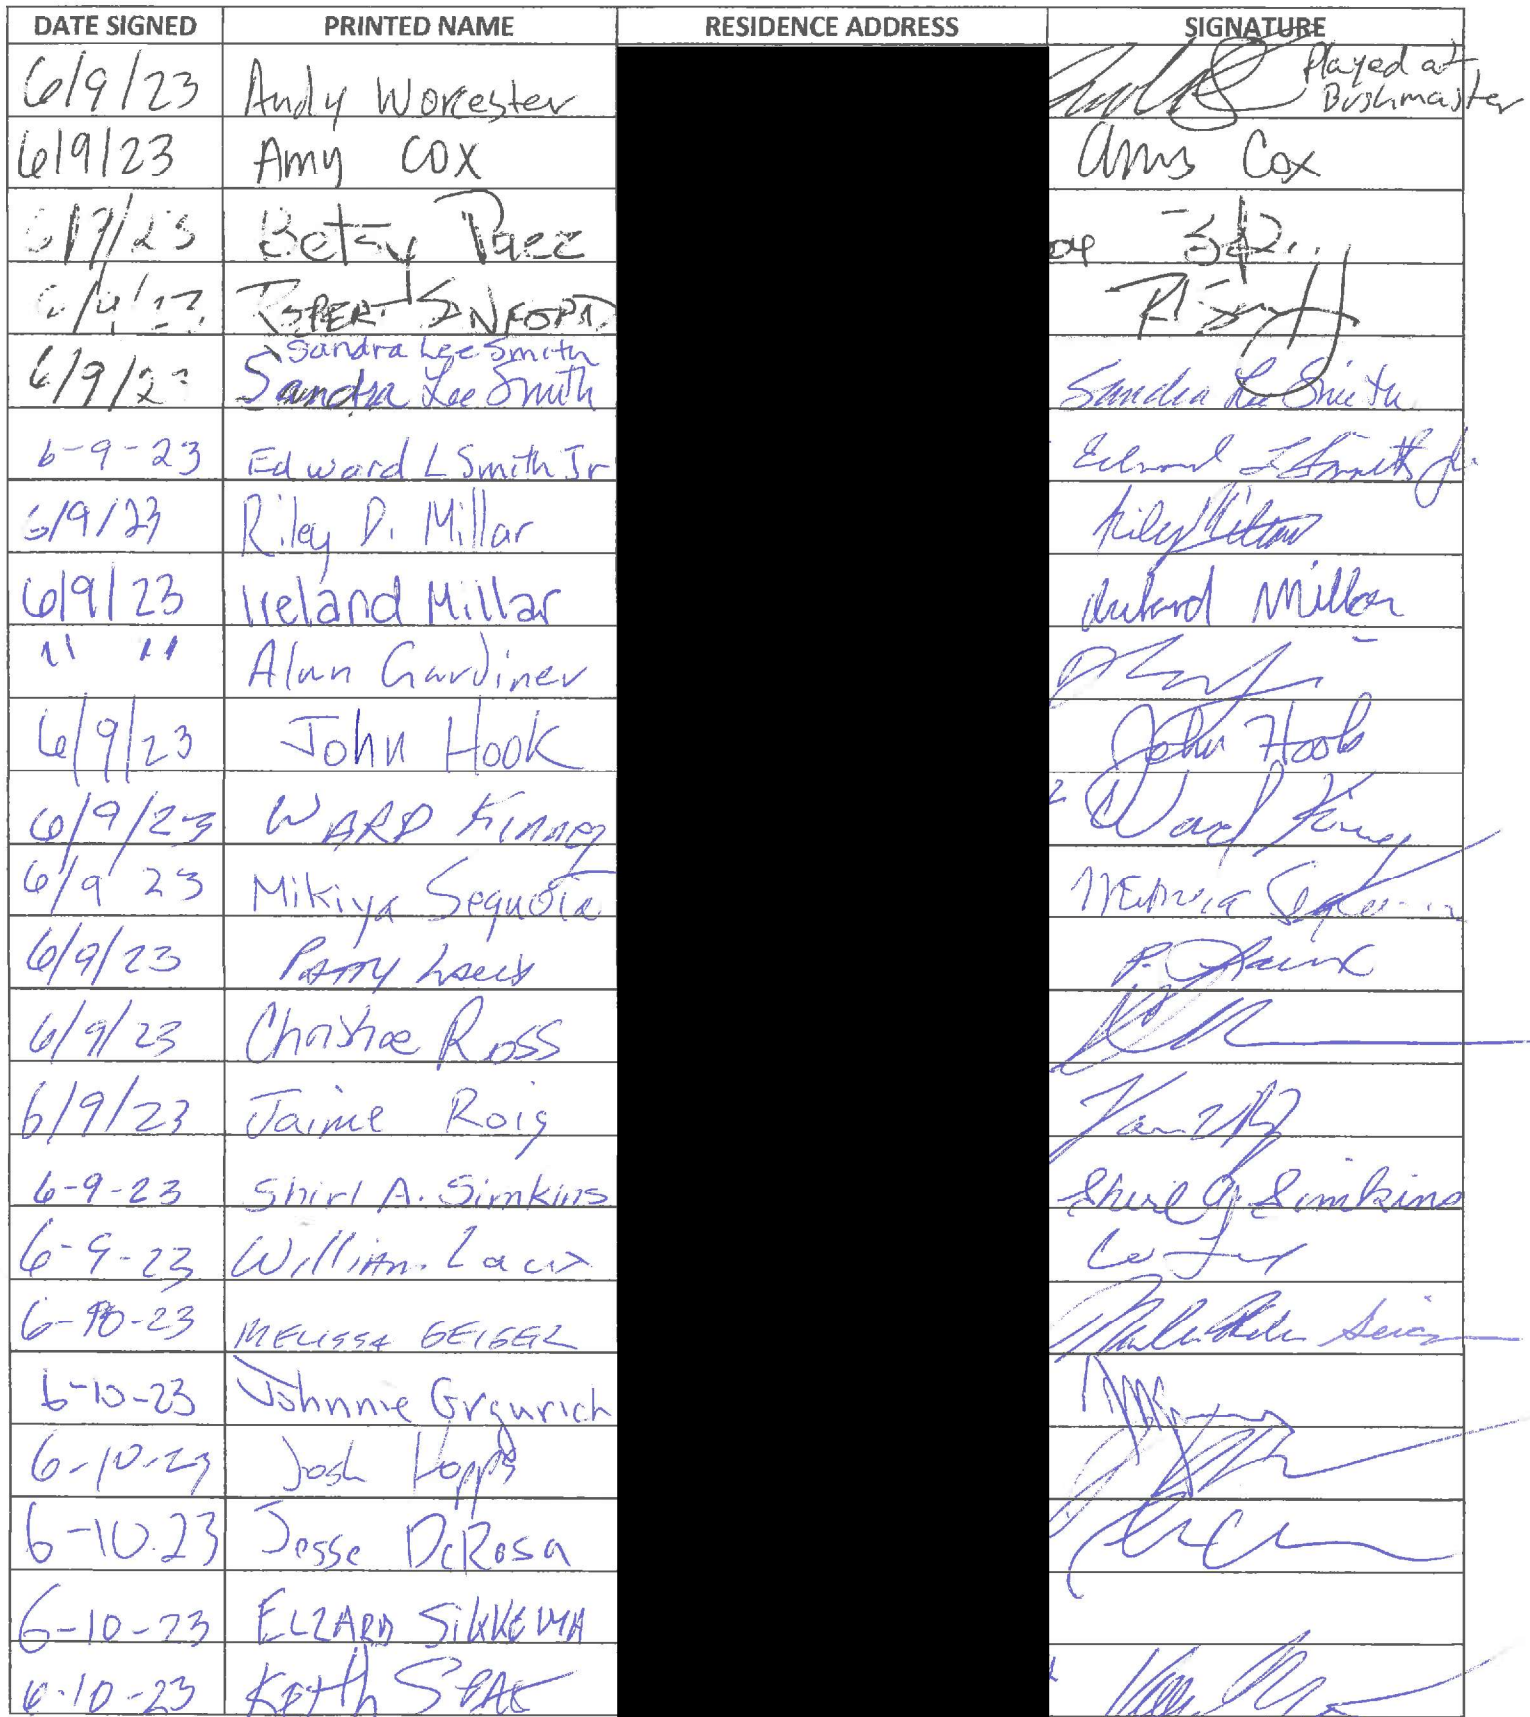 DATE SIGNED PRINTED NAME RESIDENCE ADDRESS SIGNATURE
6/9/23 Andy Worcester Played at
Bushmaster
6/9/23 Amy Cox Amy Cox
Betsy Paez
Sandra Lee Smith
6/9/23 Sandra Lee Smith Sandra Lee Smith
6-9-23 Edward L Smith Jr Edward L Smith Jr.
6/9/23 Riley D. Millar
6/9/23 Ireland Millar Ireland Millar
" " Alan Gardiner
6/9/23 John Hook John Hook
6/9/23 WARD Kinney Ward Kinney
6/9 23 Mikiya Sequoia
6/9/23 Patty Laux P. Laux
6/9/23 Christine Ross
6/9/23 Jaime Roig
6-9-23 Shirl A. Simkins Shirl A. Simkins
6-9-23 William Laux
6-10-23 MELISSA GEIGER
6-10-23 Johnnie Grgurich
6-10-23 Josh Hopps
6-10.23 Jesse DeRosa
6-10-23 ELZARD SIKKEMA
6-10-23 Keith